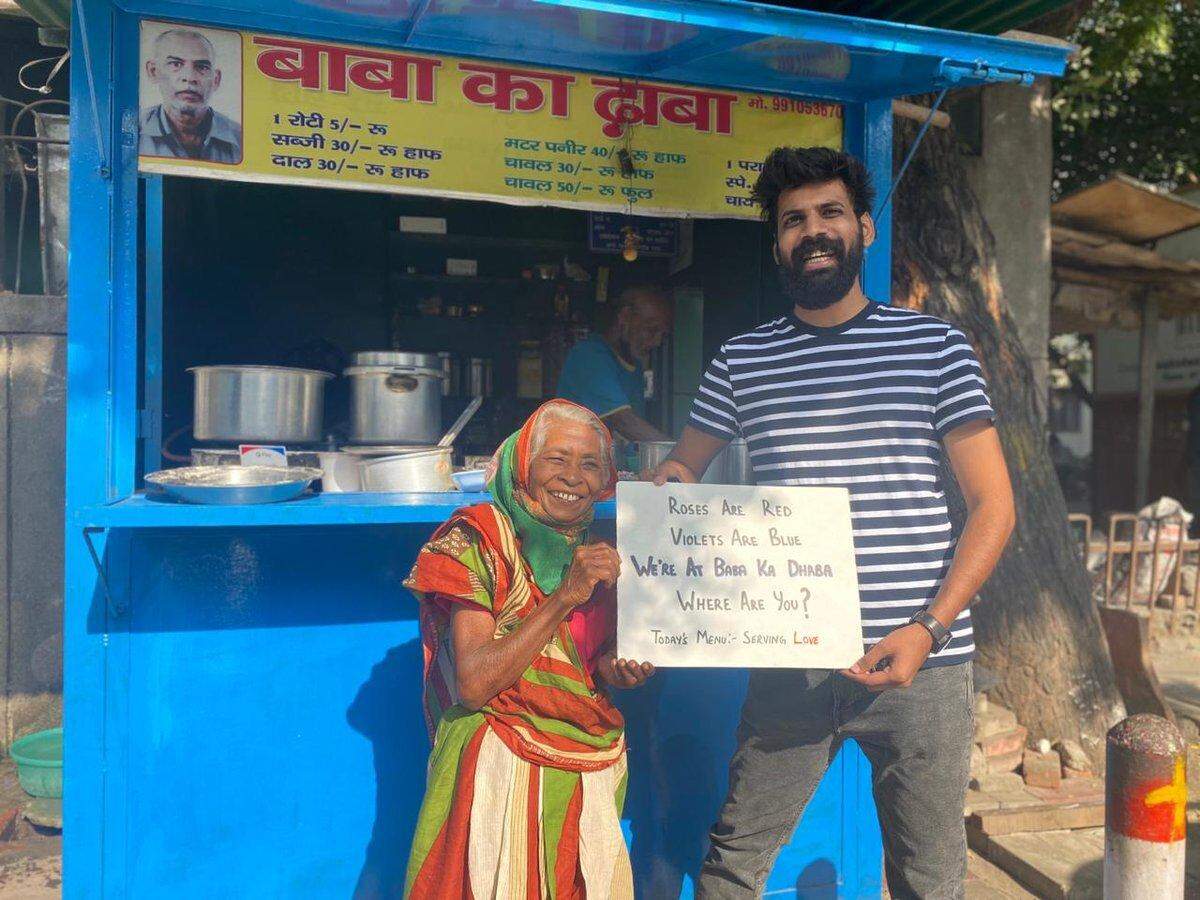 बाबा का ढ़ाबा
मो. 991053670
1 रोटी 5/– रू
सब्जी 30/– रू हाफ
दाल 30/– रू हाफ
मटर पनीर 40/– रू हाफ
चावल 30/– रू हाफ
चावल 50/– रू फुल
1 परा
स्पे.
चाय
Roses Are Red
Violets Are Blue
We're At Baba Ka Dhaba
Where Are You?
Today's Menu:- Serving Love